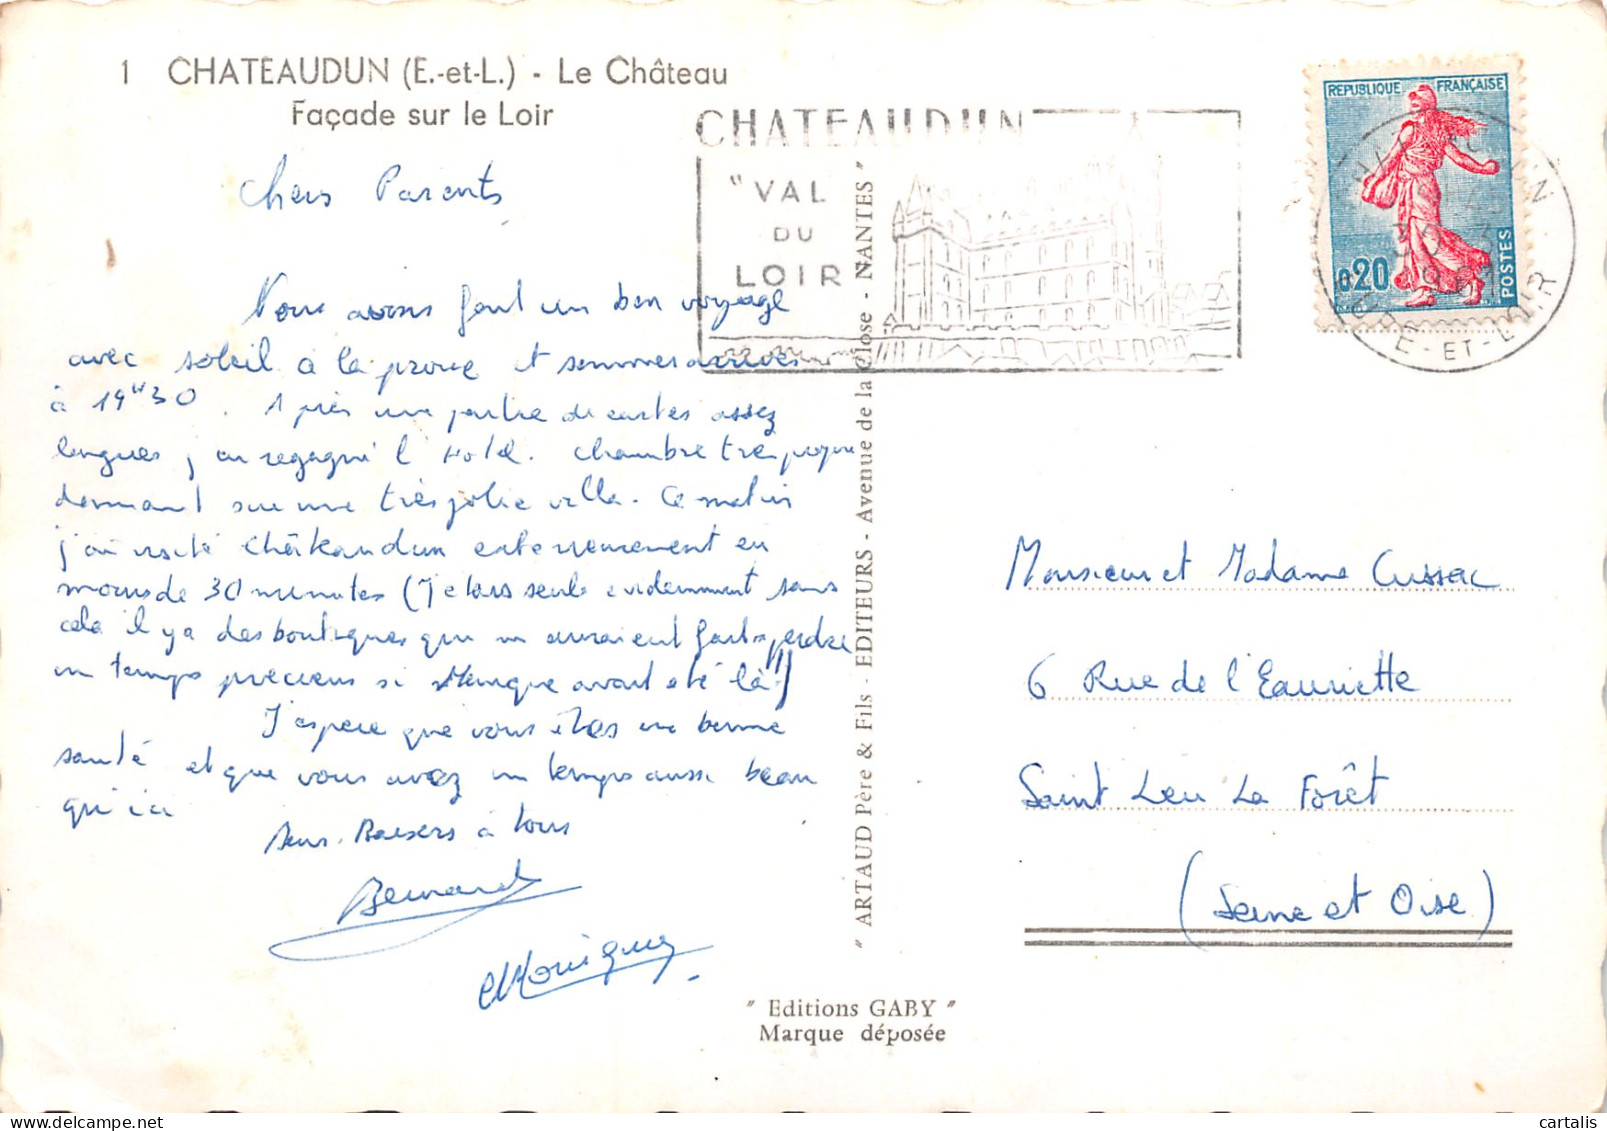 1 CHATEAUDUN (E.-et-L.) - Le Château
Façade sur le Loir
Chers Parents
Nous avons fait un bon voyage
avec soleil à la prove et sommes arrivés
à 19H30. Après une partie de cartes assez
longues, j'ai regagné l'Hotel. Chambre très propre
donnant sur une très jolie ville. Ce matin
j'ai visité Châteaudun exterieurement en
moins de 30 minutes (J'etais seule evidemment sans
cela il y a des boutiques qui m'auraient fait perdre
un temps précieux si Monique avait été là!!)
J'espère que vous êtes en bonne
santé et que vous avez un temps aussi beau
qu'ici
Baisers à tous
Bernard
Monique
CHATEAUDUN
"VAL
DU
LOIR"
REPUBLIQUE FRANÇAISE
0,20
POSTES
CHATEAUDUN
EURE-ET-LOIR
" ARTAUD Père & Fils - EDITEURS - Avenue de la Close - NANTES "
Monsieur et Madame Cussac
6 Rue de l'Eauriette
Saint Leu La Forêt
(Seine et Oise)
" Editions GABY "
Marque déposée
cartalis | delcampe.net